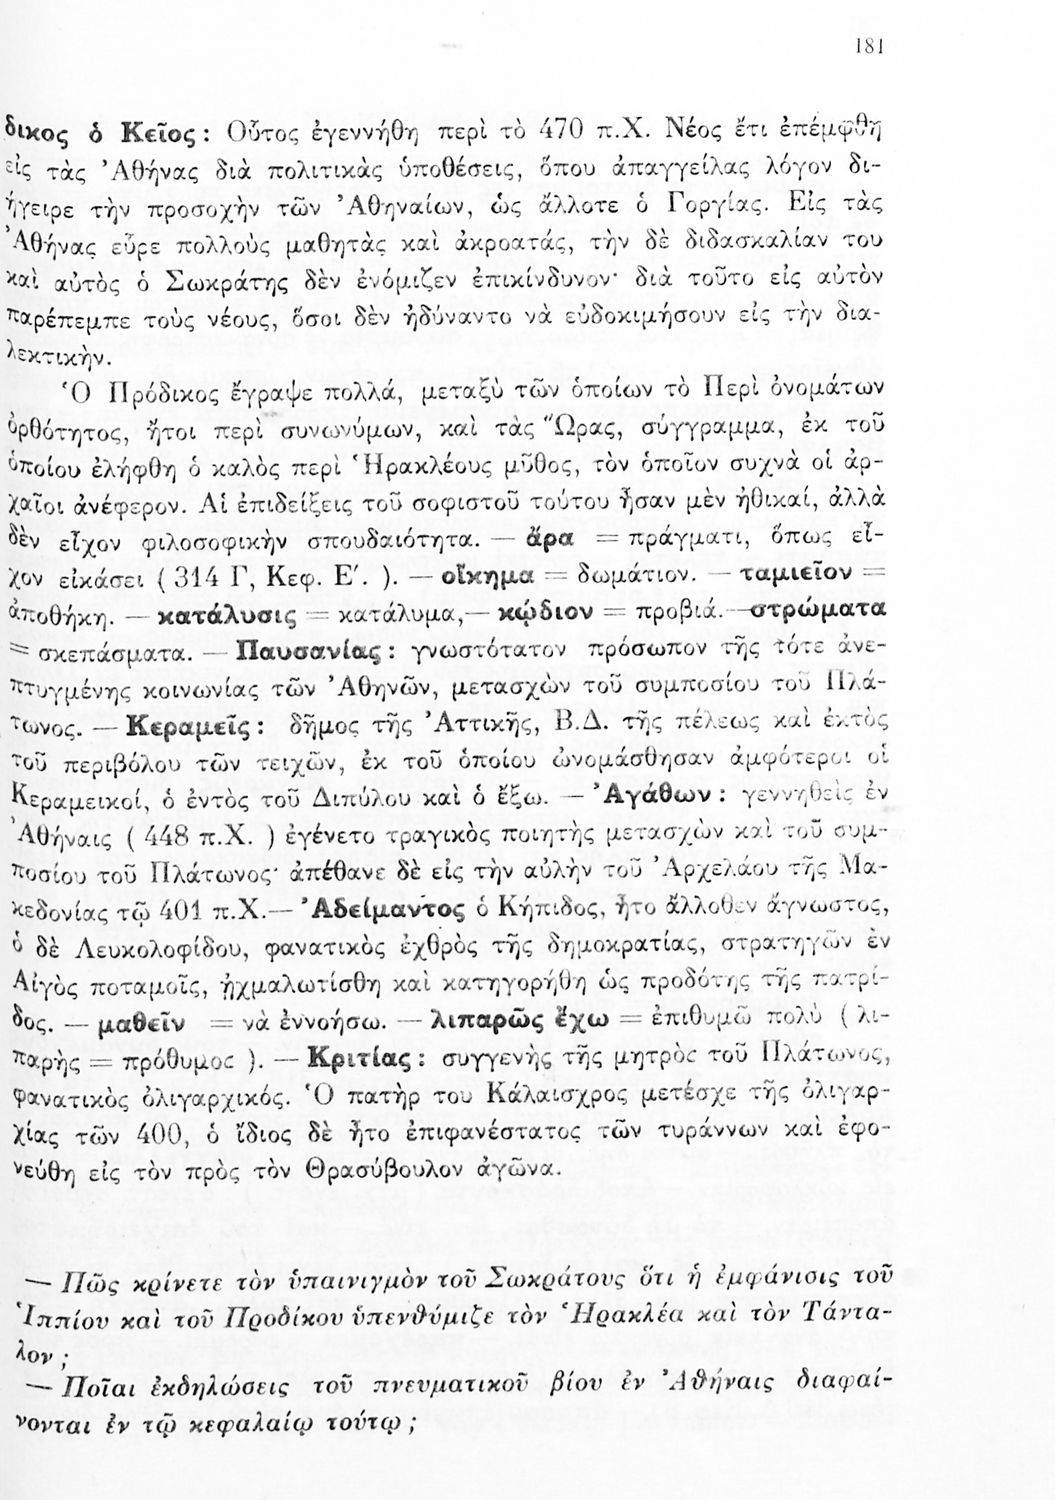 181
δικος ὁ Κεῖος: Οὗτος ἐγεννήθη περὶ τὸ 470 π.Χ. Νέος ἔτι ἐπέμφθη
εἰς τὰς Ἀθήνας διὰ πολιτικὰς ὑποθέσεις, ὅπου ἀπαγγείλας λόγον δι-
ήγειρε τὴν προσοχὴν τῶν Ἀθηναίων, ὡς ἄλλοτε ὁ Γοργίας. Εἰς τὰς
Ἀθήνας εὗρε πολλοὺς μαθητὰς καὶ ἀκροατάς, τὴν δὲ διδασκαλίαν του
καὶ αὐτὸς ὁ Σωκράτης δὲν ἐνόμιζεν ἐπικίνδυνον· διὰ τοῦτο εἰς αὐτὸν
παρέπεμπε τοὺς νέους, ὅσοι δὲν ἠδύναντο νὰ εὐδοκιμήσουν εἰς τὴν δια-
λεκτικὴν.
Ὁ Πρόδικος ἔγραψε πολλά, μεταξὺ τῶν ὁποίων τὸ Περὶ ὀνομάτων
ὀρθότητος, ἤτοι περὶ συνωνύμων, καὶ τὰς Ὥρας, σύγγραμμα, ἐκ τοῦ
ὁποίου ἐλήφθη ὁ καλὸς περὶ Ἡρακλέους μῦθος, τὸν ὁποῖον συχνὰ οἱ ἀρ-
χαῖοι ἀνέφερον. Αἱ ἐπιδείξεις τοῦ σοφιστοῦ τούτου ἦσαν μὲν ἠθικαί, ἀλλὰ
δὲν εἶχον φιλοσοφικὴν σπουδαιότητα. — ἄρα = πράγματι, ὅπως εἶ-
χον εἰκάσει ( 314 Γ, Κεφ. Ε′. ). — οἴκημα = δωμάτιον. — ταμιεῖον =
ἀποθήκη. — κατάλυσις = κατάλυμα,— κῴδιον = προβιά.—στρώματα
= σκεπάσματα. — Παυσανίας: γνωστότατον πρόσωπον τῆς τότε ἀνε-
πτυγμένης κοινωνίας τῶν Ἀθηνῶν, μετασχὼν τοῦ συμποσίου τοῦ Πλά-
τωνος. — Κεραμεῖς: δῆμος τῆς Ἀττικῆς, Β.Δ. τῆς πόλεως καὶ ἐκτὸς
τοῦ περιβόλου τῶν τειχῶν, ἐκ τοῦ ὁποίου ὠνομάσθησαν ἀμφότεροι οἱ
Κεραμεικοί, ὁ ἐντὸς τοῦ Διπύλου καὶ ὁ ἔξω. — Ἀγάθων: γεννηθεὶς ἐν
Ἀθήναις ( 448 π.Χ. ) ἐγένετο τραγικὸς ποιητὴς μετασχὼν καὶ τοῦ συμ-
ποσίου τοῦ Πλάτωνος· ἀπέθανε δὲ εἰς τὴν αὐλὴν τοῦ Ἀρχελάου τῆς Μα-
κεδονίας τῷ 401 π.Χ.— Ἀδείμαντος ὁ Κήπιδος, ἦτο ἄλλοθεν ἄγνωστος,
ὁ δὲ Λευκολοφίδου, φανατικὸς ἐχθρὸς τῆς δημοκρατίας, στρατηγῶν ἐν
Αἰγὸς ποταμοῖς, ᾐχμαλωτίσθη καὶ κατηγορήθη ὡς προδότης τῆς πατρί-
δος. — μαθεῖν = νὰ ἐννοήσω. — λιπαρῶς ἔχω = ἐπιθυμῶ πολὺ ( λι-
παρὴς = πρόθυμος ). — Κριτίας: συγγενὴς τῆς μητρὸς τοῦ Πλάτωνος,
φανατικὸς ὀλιγαρχικός. Ὁ πατὴρ του Κάλαισχρος μετέσχε τῆς ὀλιγαρ-
χίας τῶν 400, ὁ ἴδιος δὲ ἦτο ἐπιφανέστατος τῶν τυράννων καὶ ἐφο-
νεύθη εἰς τὸν πρὸς τὸν Θρασύβουλον ἀγῶνα.
— Πῶς κρίνετε τὸν ὑπαινιγμὸν τοῦ Σωκράτους ὅτι ἡ ἐμφάνισις τοῦ
Ἱππίου καὶ τοῦ Προδίκου ὑπενθύμιζε τὸν Ἡρακλέα καὶ τὸν Τάντα-
λον ;
— Ποῖαι ἐκδηλώσεις τοῦ πνευματικοῦ βίου ἐν Ἀθήναις διαφαί-
νονται ἐν τῷ κεφαλαίῳ τούτῳ ;